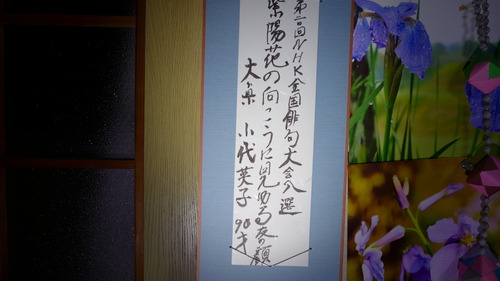 第二回NHK全国俳句大会入選
紫陽花の向こうに見ゆる夜の顔
小代英子 90才